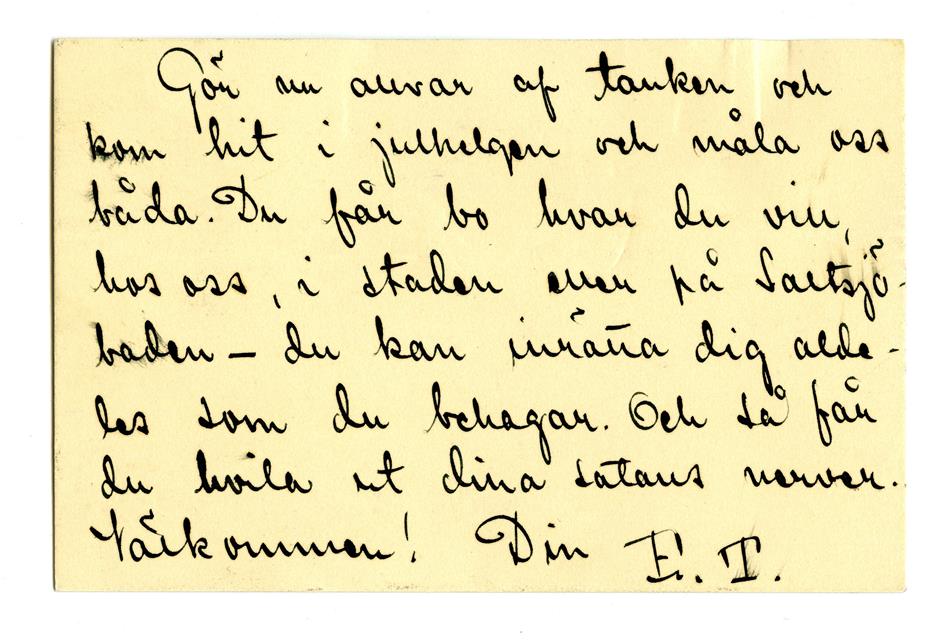 Gör nu allvar af tanken och
kom hit i julhelgen och måla oss
båda. Du får bo hvar du vill,
hos oss, i staden eller på Saltsjö-
baden – du kan inrätta dig alde-
les som du behagar. Och så får
du hvila ut dina satans nerver.
Välkommen! Din E. T.